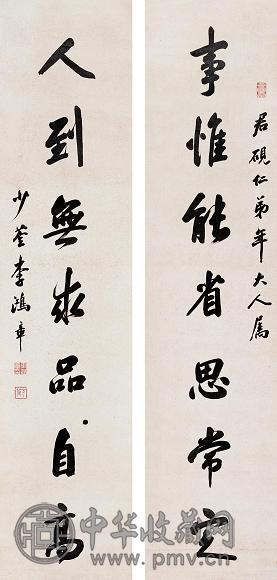 君硯仁弟年大人属
事惟能省思常定
人到無求品自高
少荃李鴻章
中华收藏网
www.pmv.cn